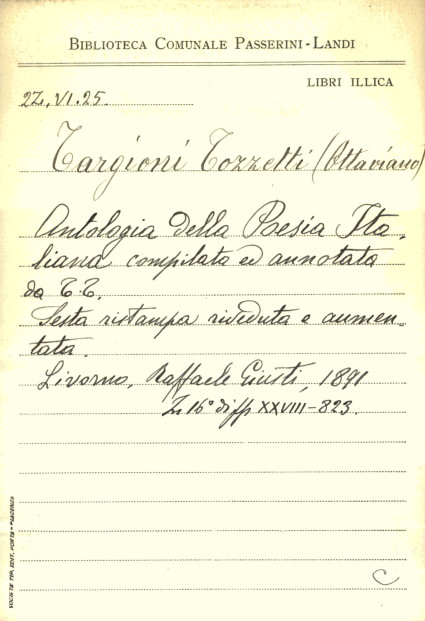 BIBLIOTECA COMUNALE PASSERINI-LANDI
LIBRI ILLICA
2Z.VI.25.
Targioni Tozzetti (Ottaviano)
Antologia della Poesia Ita-
liana compilata ed annotata
da T.T.
Sesta ristampa riveduta e aumen-
tata.
Livorno, Raffaele Giusti, 1891
In 16° di pp XXVIII-823.
C